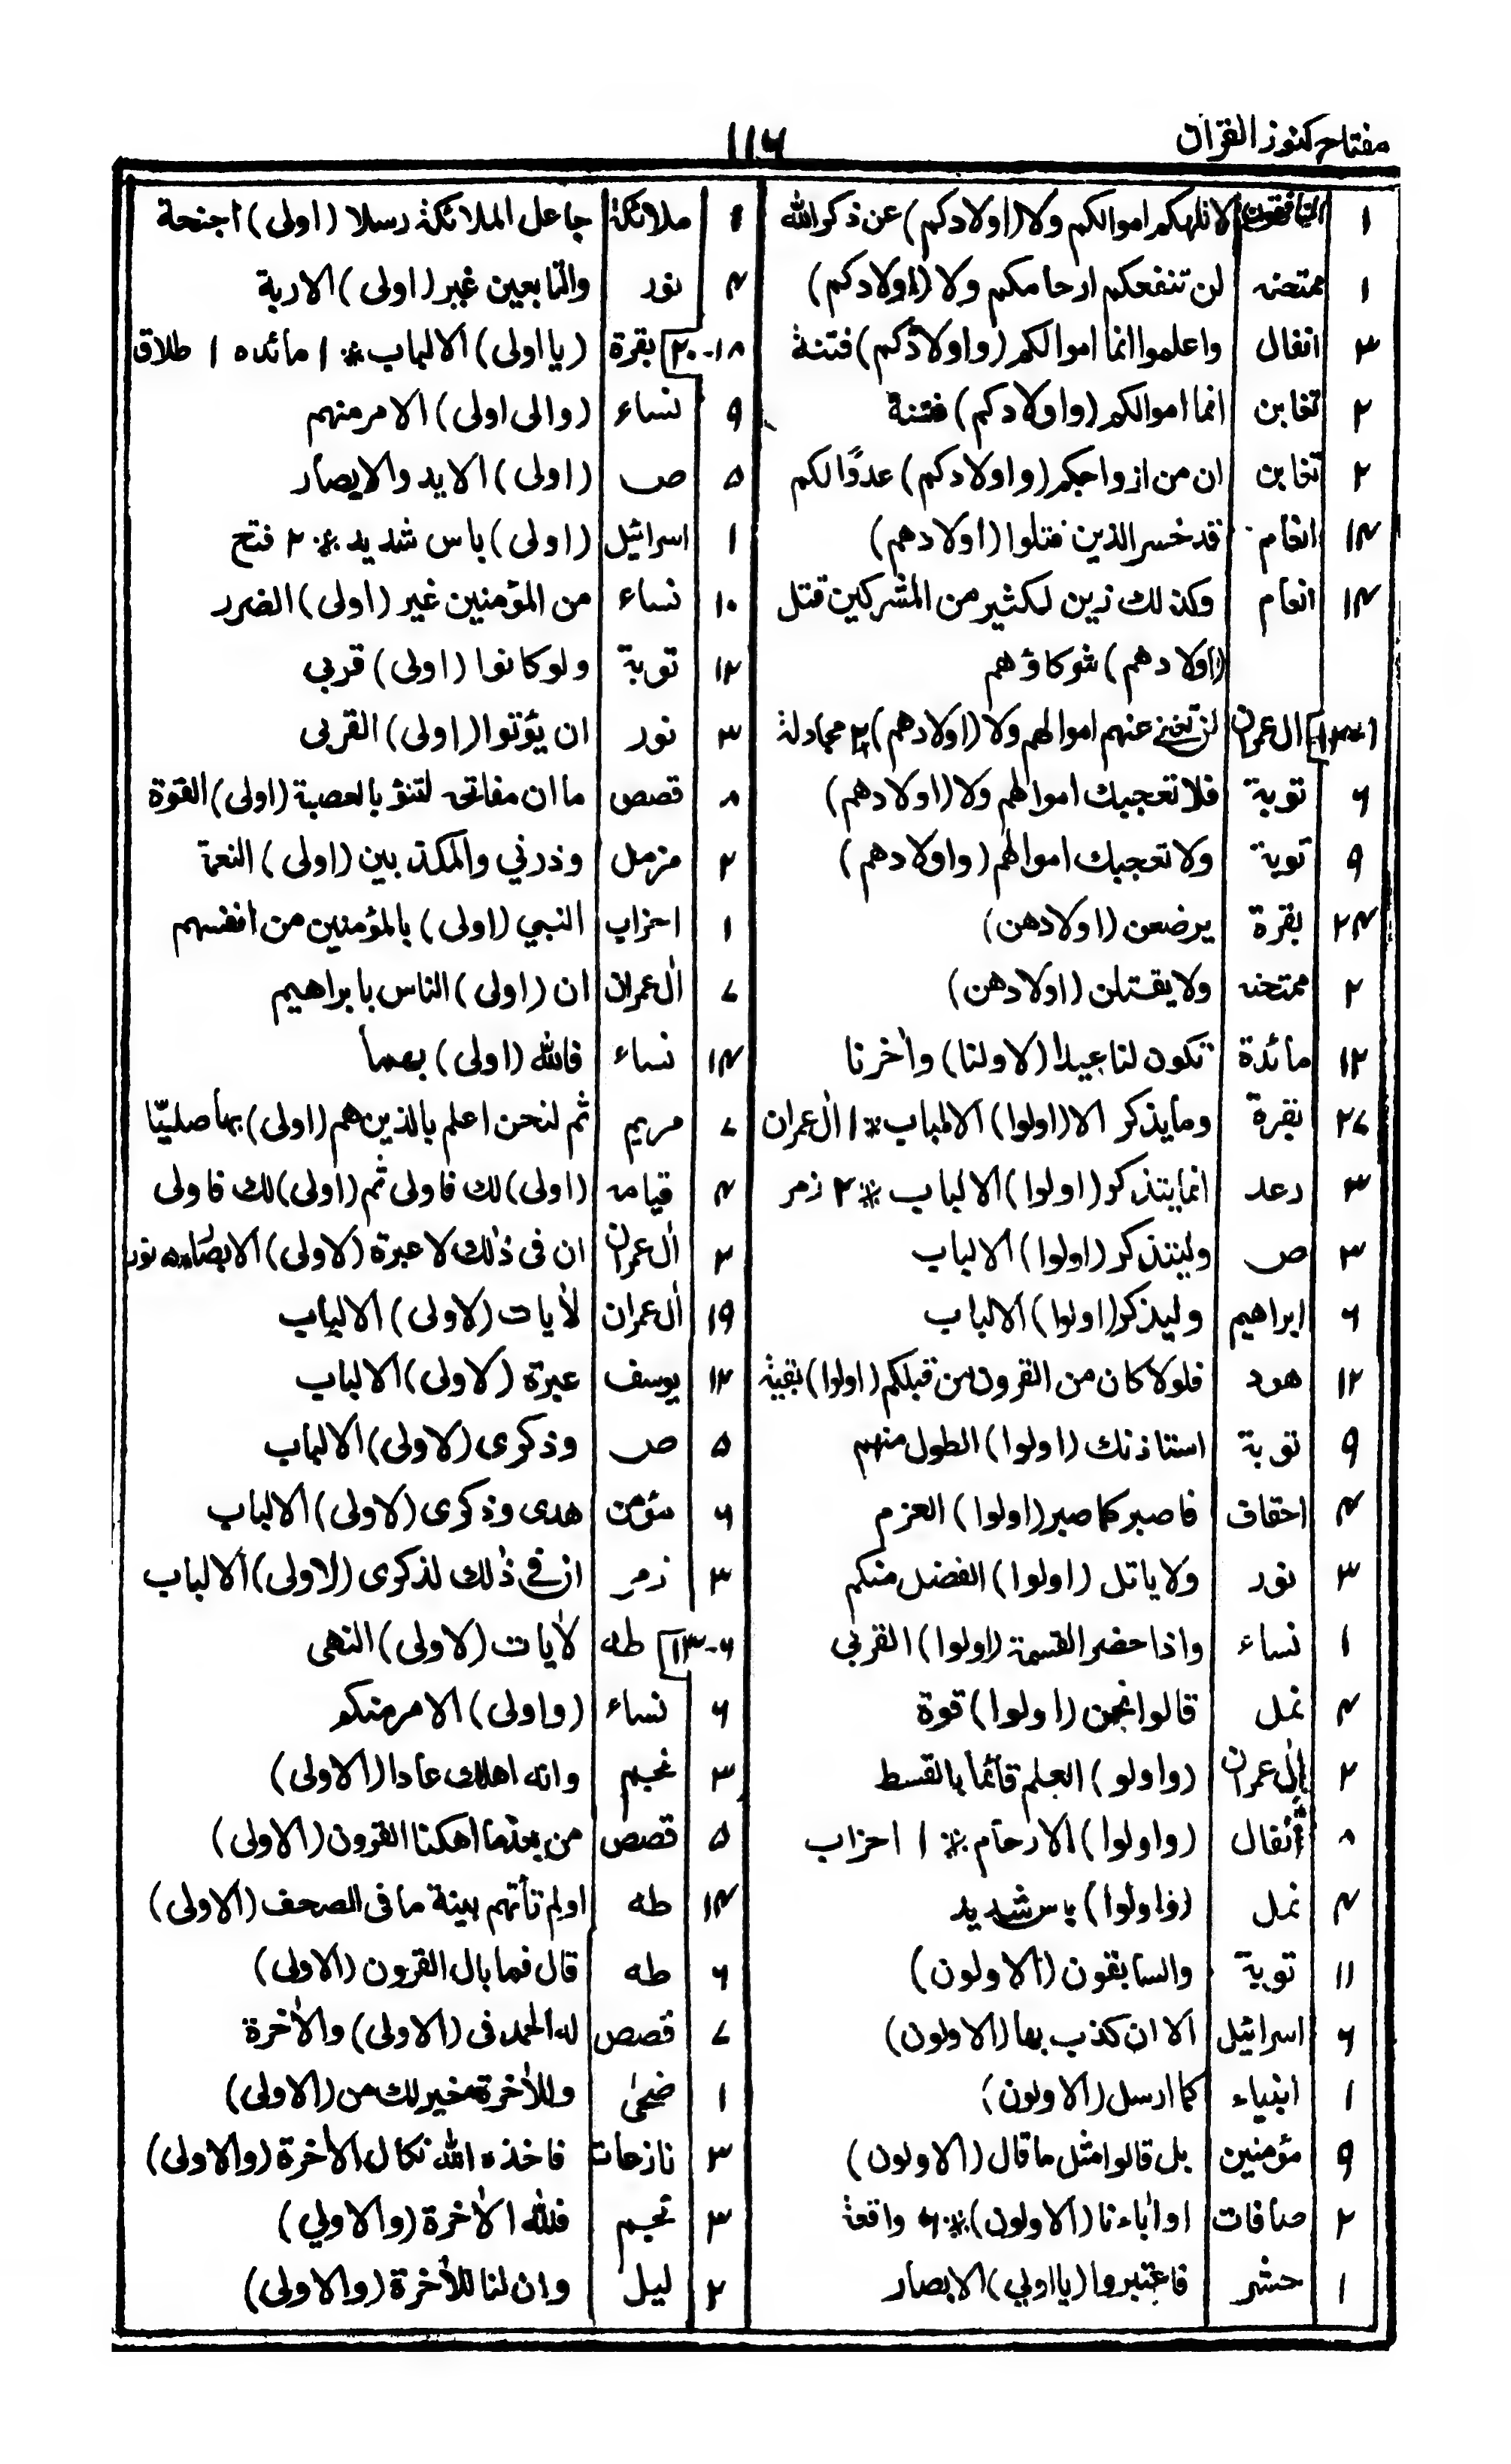 مفتاح كنوز القران
۱۱۶
۱ المنافقون لا تلهكم اموالكم ولا (اولادكم) عن ذكر الله
۱ ممتحنه لن تنفعكم ارحامكم ولا (اولادكم)
۳ انفال واعلموا انما اموالكم (واولادكم) فتنة
۲ تغابن انما اموالكم (واولادكم) فتنة
۲ تغابن ان من ازواجكم (واولادكم) عدوًّا لكم
۱۴ انعام قد خسر الذين قتلوا (اولادهم)
۱۴ انعام وكذلك زين لكثير من المشركين قتل
(اولادهم) شركاؤهم
ال عمران لن تغني عنهم اموالهم ولا (اولادهم) ۳ مجادلة
۶ توبة فلا تعجبك اموالهم ولا (اولادهم)
۹ توبة ولا تعجبك اموالهم (واولادهم)
۲۴ بقرة يرضعن (اولادهن)
۲ ممتحنه ولا يقتلن (اولادهن)
۱۲ مائدة تكون لنا عيدا (لاولنا) واٰخرنا
۲۷ بقرة وما يذكر الا (اولوا) الالباب * ۱ اٰل عمران
۳ رعد انما يتذكر (اولوا) الالباب * ۲ زمر
۳ ص وليتذكر (اولوا) الالباب
۶ ابراهيم وليذكر (اولوا) الالباب
۱۲ هود فلولا كان من القرون من قبلكم (اولوا) بقية
۹ توبة استاذنك (اولوا) الطول منهم
۴ احقاف فاصبر كما صبر (اولوا) العزم
۳ نور ولا ياتل (اولوا) الفضل منكم
۱ نساء واذا حضر القسمة (اولوا) القربى
۴ نمل قالوا نحن (اولوا) قوة
۲ اٰل عمران (واولو) العلم قائما بالقسط
۸ انفال (واولوا) الارحام * ۱ احزاب
۴ نمل (واولوا) باس شديد
۱۱ توبة والسابقون (الاولون)
۶ اسرائيل الا ان كذب بها (الاولون)
۱ انبياء كما ارسل (الاولون)
۹ مؤمنين بل قالوا مثل ما قال (الاولون)
۲ صافات او اٰباءنا (الاولون) * ۶ واقعة
۱ حشر فاعتبروا (يا اولي) الابصار
۱ ملائكة جاعل الملائكة رسلا (اولى) اجنحة
۴ نور والتابعين غير (اولى) الاربة
۱۸-۲۰ بقرة (يا اولى) الالباب * ۱ مائده ۱ طلاق
۹ نساء (والى اولى) الامر منهم
۵ ص (اولى) الايد والابصار
۱ اسرائيل (اولى) باس شديد * ۲ فتح
۱۰ نساء من المؤمنين غير (اولى) الضرر
۱۲ توبة ولو كانوا (اولى) قربى
۳ نور ان يؤتوا (اولى) القربى
۸ قصص ما ان مفاتحه لتنؤ بالعصبة (اولى) القوة
۲ مزمل وذرني والمكذبين (اولى) النعمة
۱ احزاب النبي (اولى) بالمؤمنين من انفسهم
۷ اٰل عمران ان (اولى) الناس بابراهيم
۱۴ نساء فالله (اولى) بهما
۷ مريم ثم لنحن اعلم بالذين هم (اولى) بها صليّا
۴ قيامه (اولى) لك فاولى ثم (اولى) لك فاولى
۲ اٰل عمران ان فى ذٰلك لا عبرة (لاولى) الابصار نور
۱۹ اٰل عمران لاٰيات (لاولى) الالباب
۱۲ يوسف عبرة (لاولى) الالباب
۵ ص وذكرى (لاولى) الالباب
۶ مؤمن هدى وذكرى (لاولى) الالباب
۳ زمر ان في ذٰلك لذكرى (لاولى) الالباب
۶-۱۳ طه لاٰيات (لاولى) النهى
۶ نساء (واولى) الامر منكم
۳ نجم وانه اهلك عادا (الاولى)
۵ قصص من بعد ما اهكنا القرون (الاولى)
۱۴ طه اولم تأتهم بينة ما فى الصحف (الاولى)
۶ طه قال فما بال القرون (الاولى)
۷ قصص له الحمد فى (الاولى) والاٰخرة
۱ ضحىٰ وللاٰخرة خير لك من (الاولى)
۳ نازعات فاخذه الله نكال الاٰخرة (والاولى)
۳ نجم فلله الاٰخرة (والاولي)
۲ ليل وان لنا للاٰخرة (والاولى)